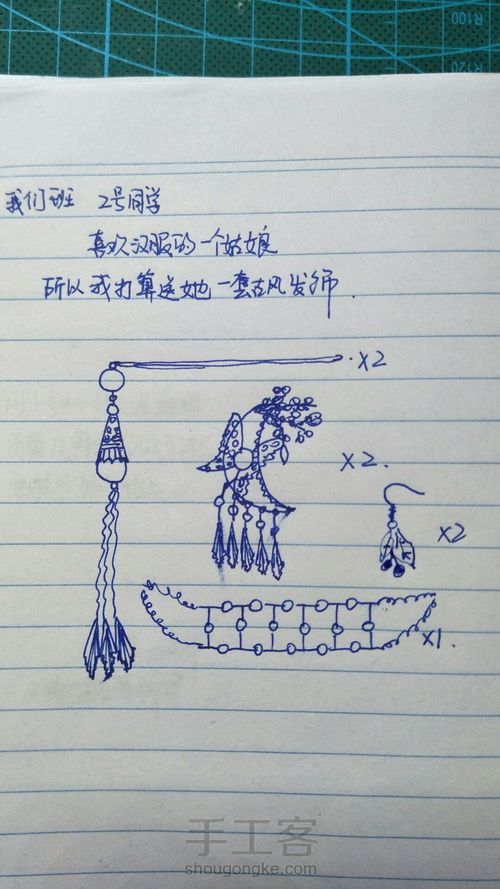 R100
R120
我们班 2号同学
喜欢汉服的一个姑娘
所以我打算送她一套古风发饰.
×2
×2.
×2
×1.
手工客
shougongke.com